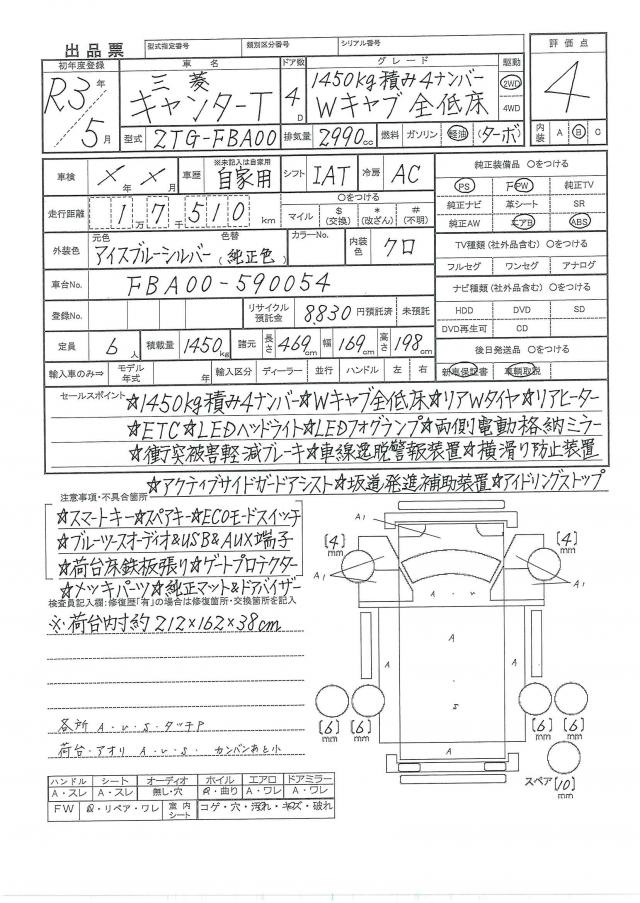 出品票 型式指定番号 類別区分番号 シリアル番号
評価点
4
内装 A B C
初年度登録 車名 ドア数 グレード 駆動
R3年/5月 三菱 キャンターT 4D 1450kg積み4ナンバー Wキャブ全低床 2WD 4WD
型式 2TG-FBA00 排気量 2990cc 燃料 ガソリン 軽油 (ターボ)
車検 ×年×月 車歴 ※未記入は自家用 自家用 シフト IAT 冷房 AC
走行距離 1万7千510km ○をつける マイル $(交換) *(改ざん) #(不明)
外装色 元色 色替 アイスブルーシルバー(純正色) カラーNo. 内装色 クロ
車台No. FBA00-590054
登録No. リサイクル預託金 8,830円預託済 未預託
定員 6人 積載量 1450kg 諸元 長さ 469cm 幅 169cm 高さ 198cm
輸入車のみ⇒ モデル年式 年 輸入区分 ディーラー 並行 ハンドル 左 右
純正装備品 ○をつける
PS PW 純正TV
純正ナビ 革シート SR
純正AW エアB ABS
TV種類(社外品含む)○をつける
フルセグ ワンセグ アナログ
ナビ種類(社外品含む)○をつける
HDD DVD SD
DVD再生可 CD
後日発送品 ○をつける
新車保証書 車輌取説
セールスポイント ☆1450kg積み4ナンバー☆Wキャブ全低床☆リアWタイヤ☆リアヒーター
☆ETC☆LEDヘッドライト☆LEDフォグランプ☆両側電動格納ミラー
☆衝突被害軽減ブレーキ☆車線逸脱警報装置☆横滑り防止装置
☆アクティブサイドガードアシスト☆坂道発進補助装置☆アイドリングストップ
注意事項・不具合箇所
☆スマートキー☆スペアキー☆ECOモードスイッチ
☆ブルーツースオーディオ&USB&AUX端子
☆荷台床鉄板張り☆ゲートプロテクター
☆メッキパーツ☆純正マット&ドアバイザー
検査員記入欄:修復歴「有」の場合は修復箇所・交換箇所を記入
※荷台内寸約212×162×38cm
各所 A・U・S・タッチP
荷台・アオリ A・U・S・ カンバンあと小
A1
[4]mm [4]mm
A1 A1
A・U
A A
A
S
[6]mm [6]mm [6]mm [6]mm
A
スペア [10]mm
ハンドル シート オーディオ ホイル エアロ ドアミラー
A・スレ A・スレ 無し・穴 A・曲り A・ワレ A・ワレ
FW ・リペア・ワレ 室内シート コゲ・穴・汚れ・キズ・破れ